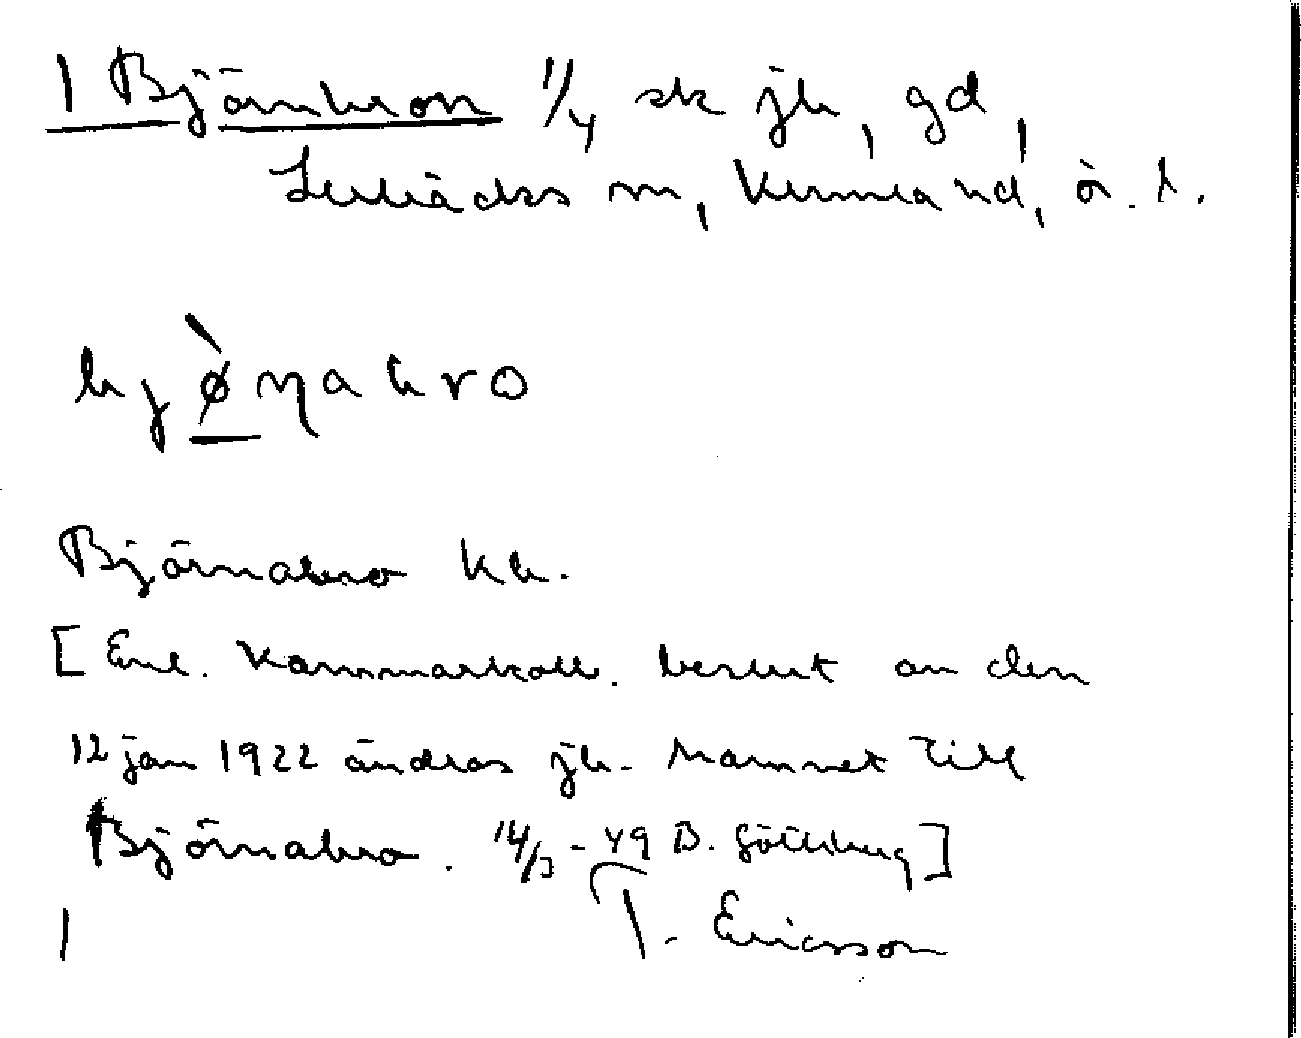 1 Björnbron 1/4 sk jb, gd,
Lerbäcks sn, Kumla hd, Ör. l.
bjø̀ṇabro
Björnabro kb.
[Enl. Kammarkoll. beslut av den
12 jan 1922 ändras jb. namnet till
Björnabro. 14/3 - 49 B. Götberg]
1 T. Ericsson